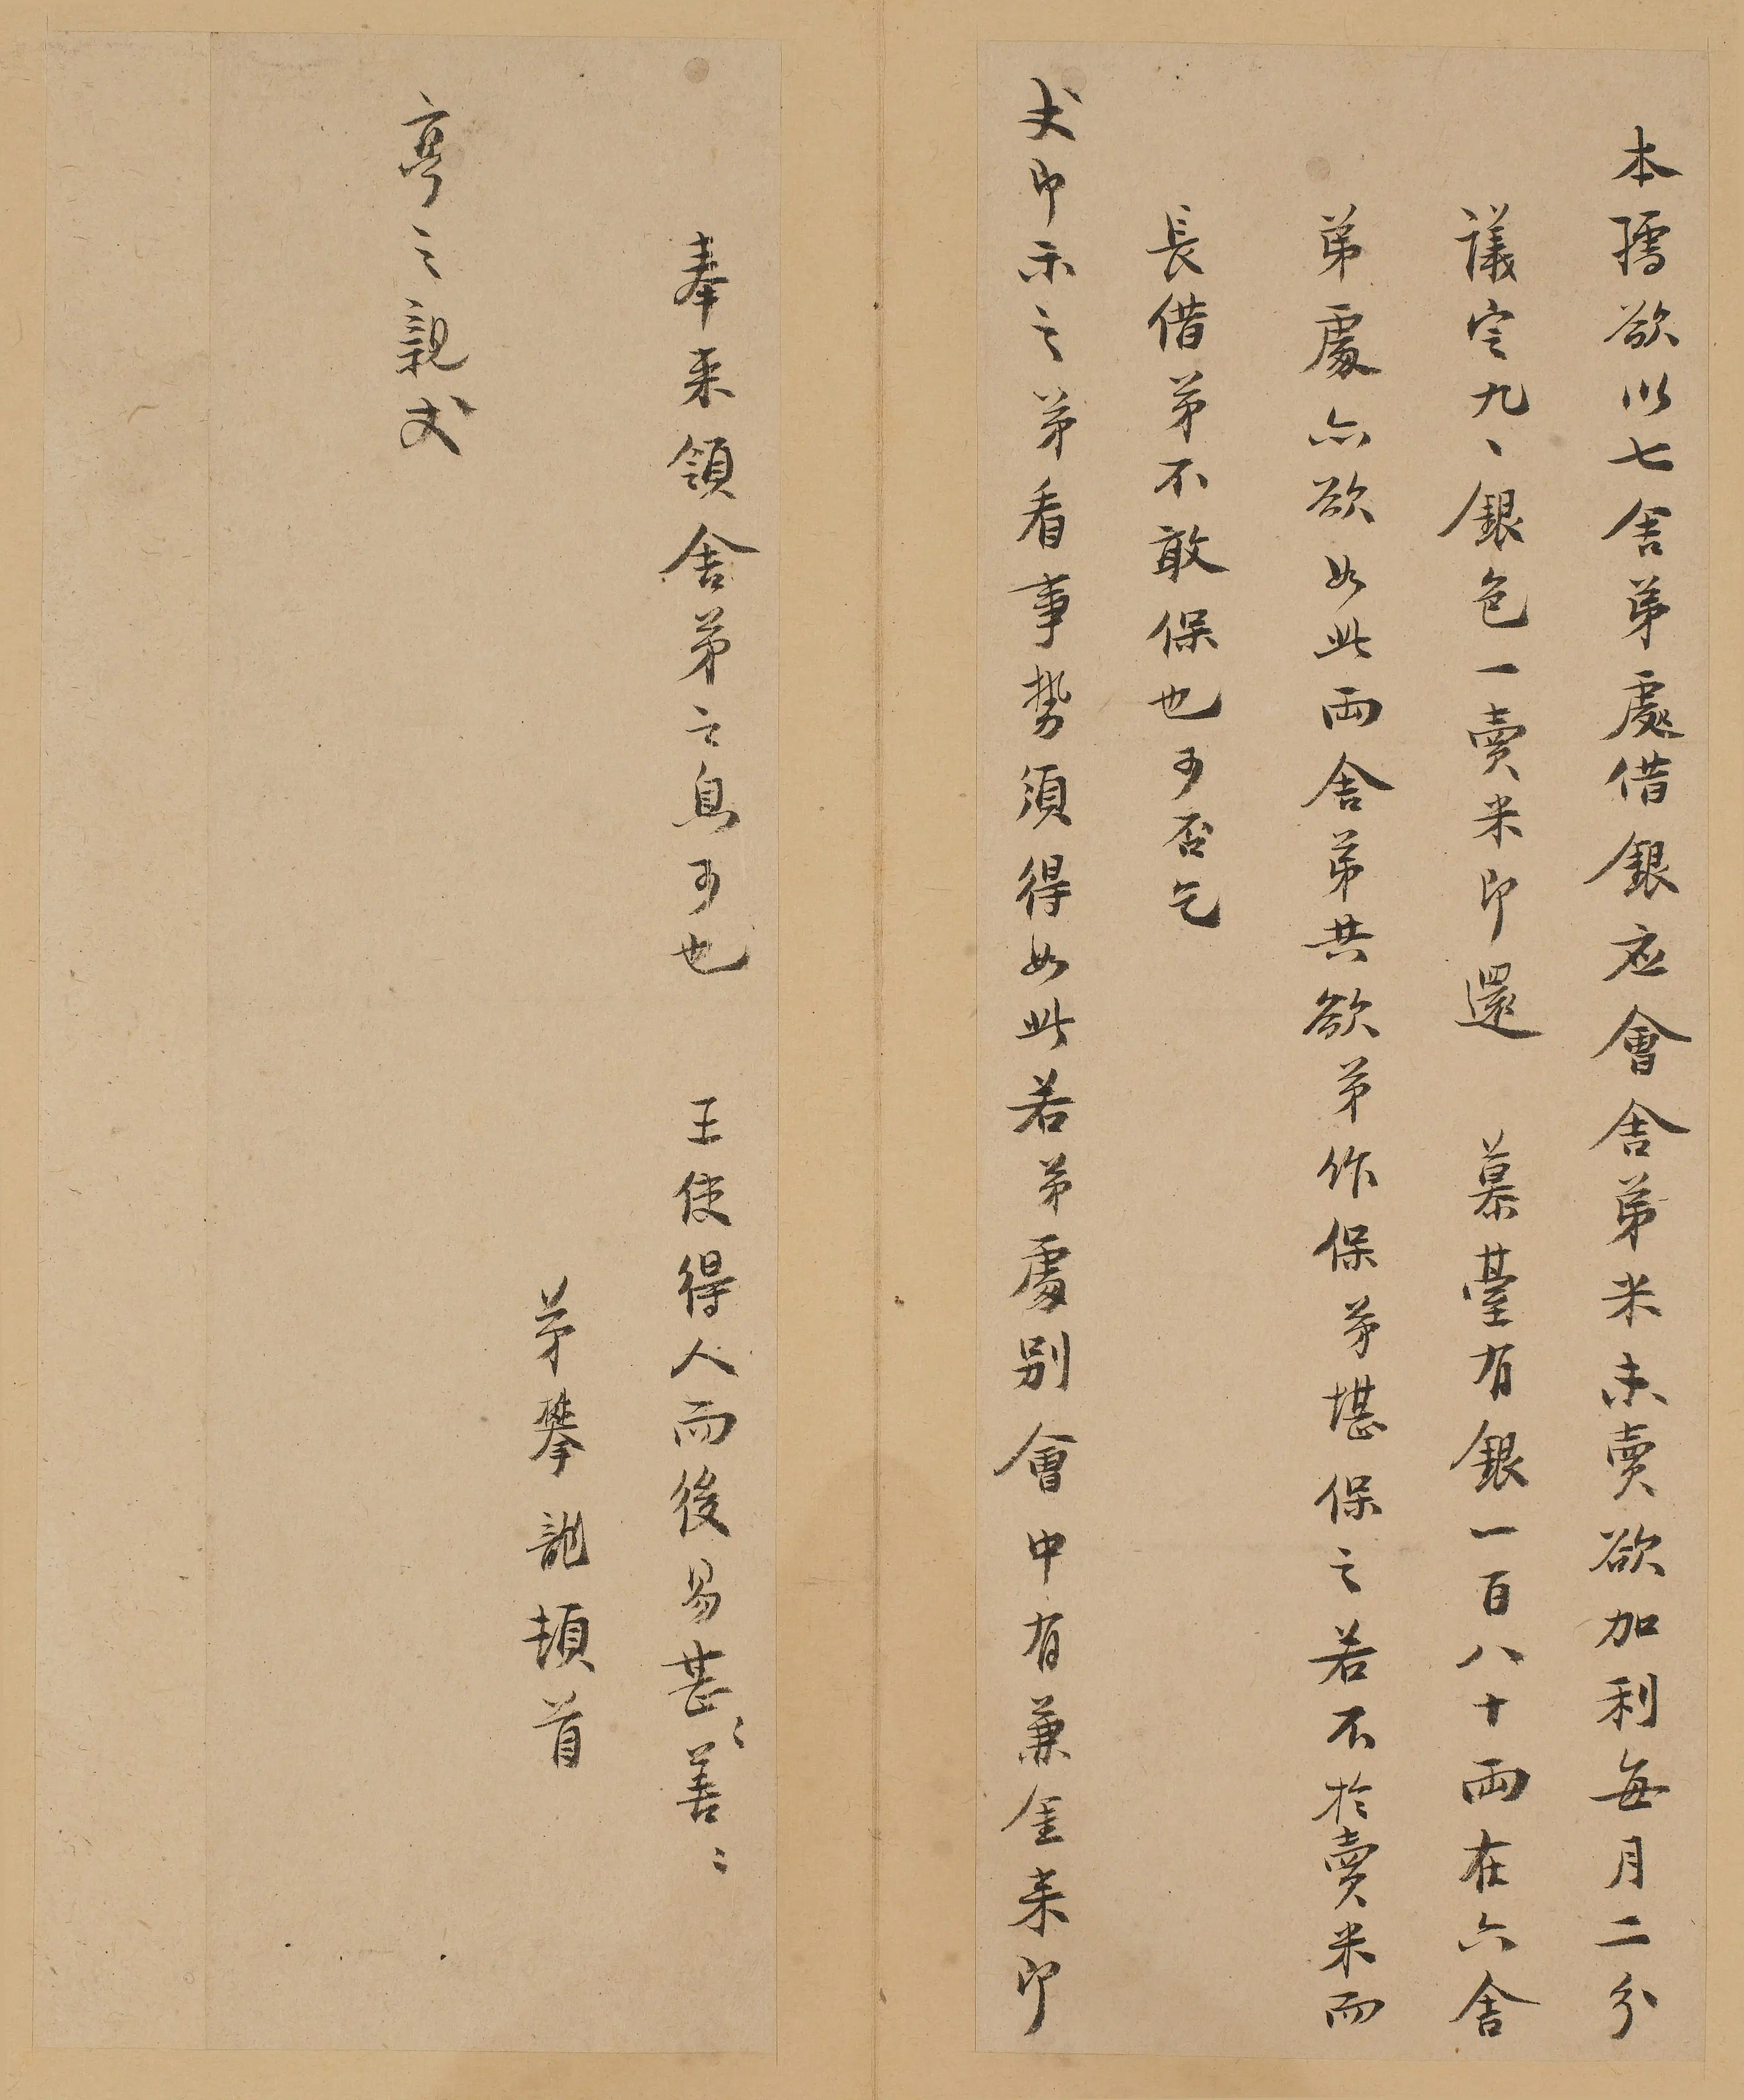 本孺欲以七舍弟處借銀應會舍弟米未賣欲加利每月二分
議定九丶銀色一賣米即還　慕臺有銀一百八十兩在六舍
弟處亦欲如此兩舍弟共欲弟作保弟堪保之若不於賣米而
長借弟不敢保也可否乞
丈即示之弟看事勢須得如此若弟處別會中有兼金來即
奉來領舍弟之息可也　王使得人而後易甚〻善〻
弟攀龍頓首
亭之親丈